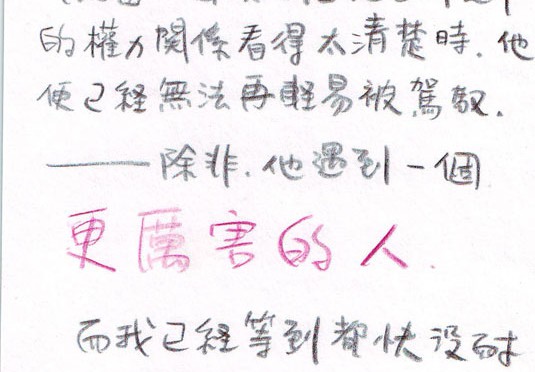 的權力關係看得太清楚時.他
便已経無法再輕易被駕馭.
——除非.他遇到一個
更厲害的人.
而我已経等到都快没耐